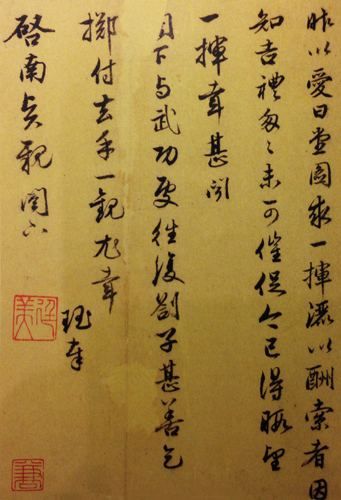 昨以愛日堂圖求一揮灑以酬索者因
知吉禮匆々未可催促今已得暇望
一揮幸甚聞
目下与武功處往復劄子甚善乞
擲付去手一觀尤幸
珏奉
啓南親閣下
廷美